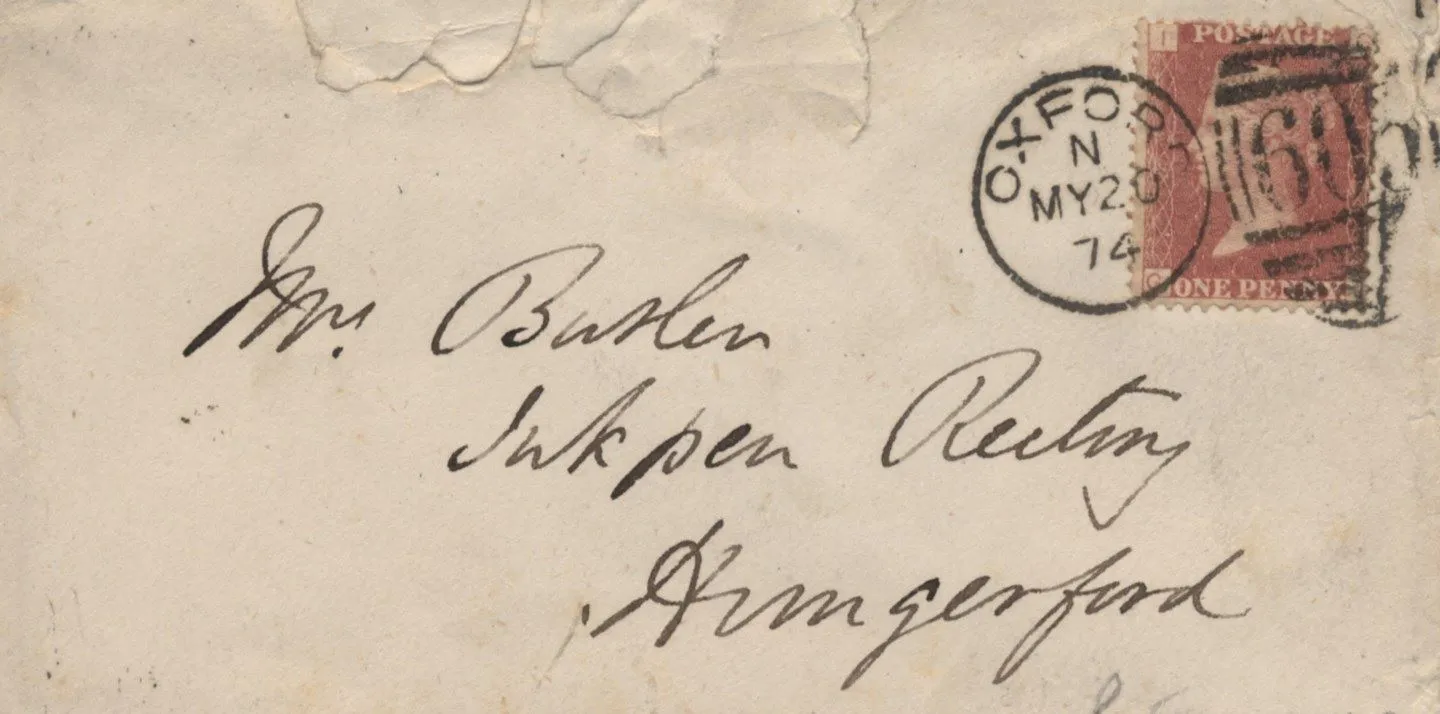 POSTAGE
OXFORD
N
MY 20
74
603
ONE PENNY
Mrs. Butler
Inkpen Rectory
Hungerford